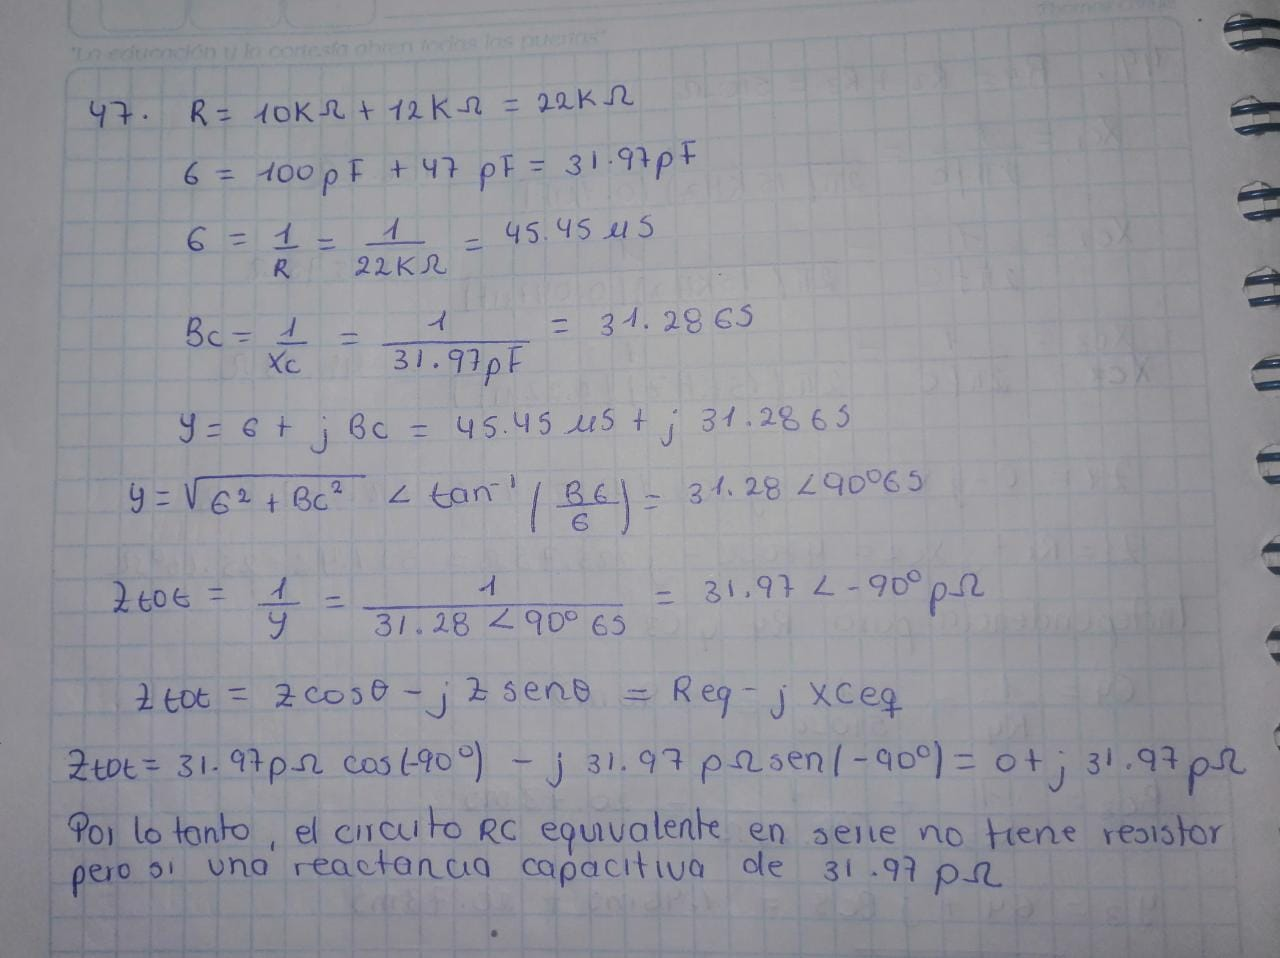 "La educación y la cortesía abren todas las puertas"
47. R = 10KΩ + 12KΩ = 22KΩ
6 = 100pF + 47 pF = 31.97pF
6 = 1/R = 1/22KΩ = 45.45 μS
Bc = 1/Xc = 1/31.97pF = 31.28 GS
y = 6 + j Bc = 45.45 μS + j 31.28 GS
y = √6² + Bc² < tan⁻¹ (B6/6) = 31.28 <90° GS
Ztot = 1/y = 1/31.28 <90° GS = 31.97 <-90° pΩ
Ztot = Z cosθ - j Z senθ = Req - j XCeq
Ztot = 31.97pΩ cos(-90°) - j 31.97 pΩ sen(-90°) = 0 + j 31.97 pΩ
Por lo tanto, el circuito RC equivalente en serie no tiene resistor
pero si una reactancia capacitiva de 31.97 pΩ